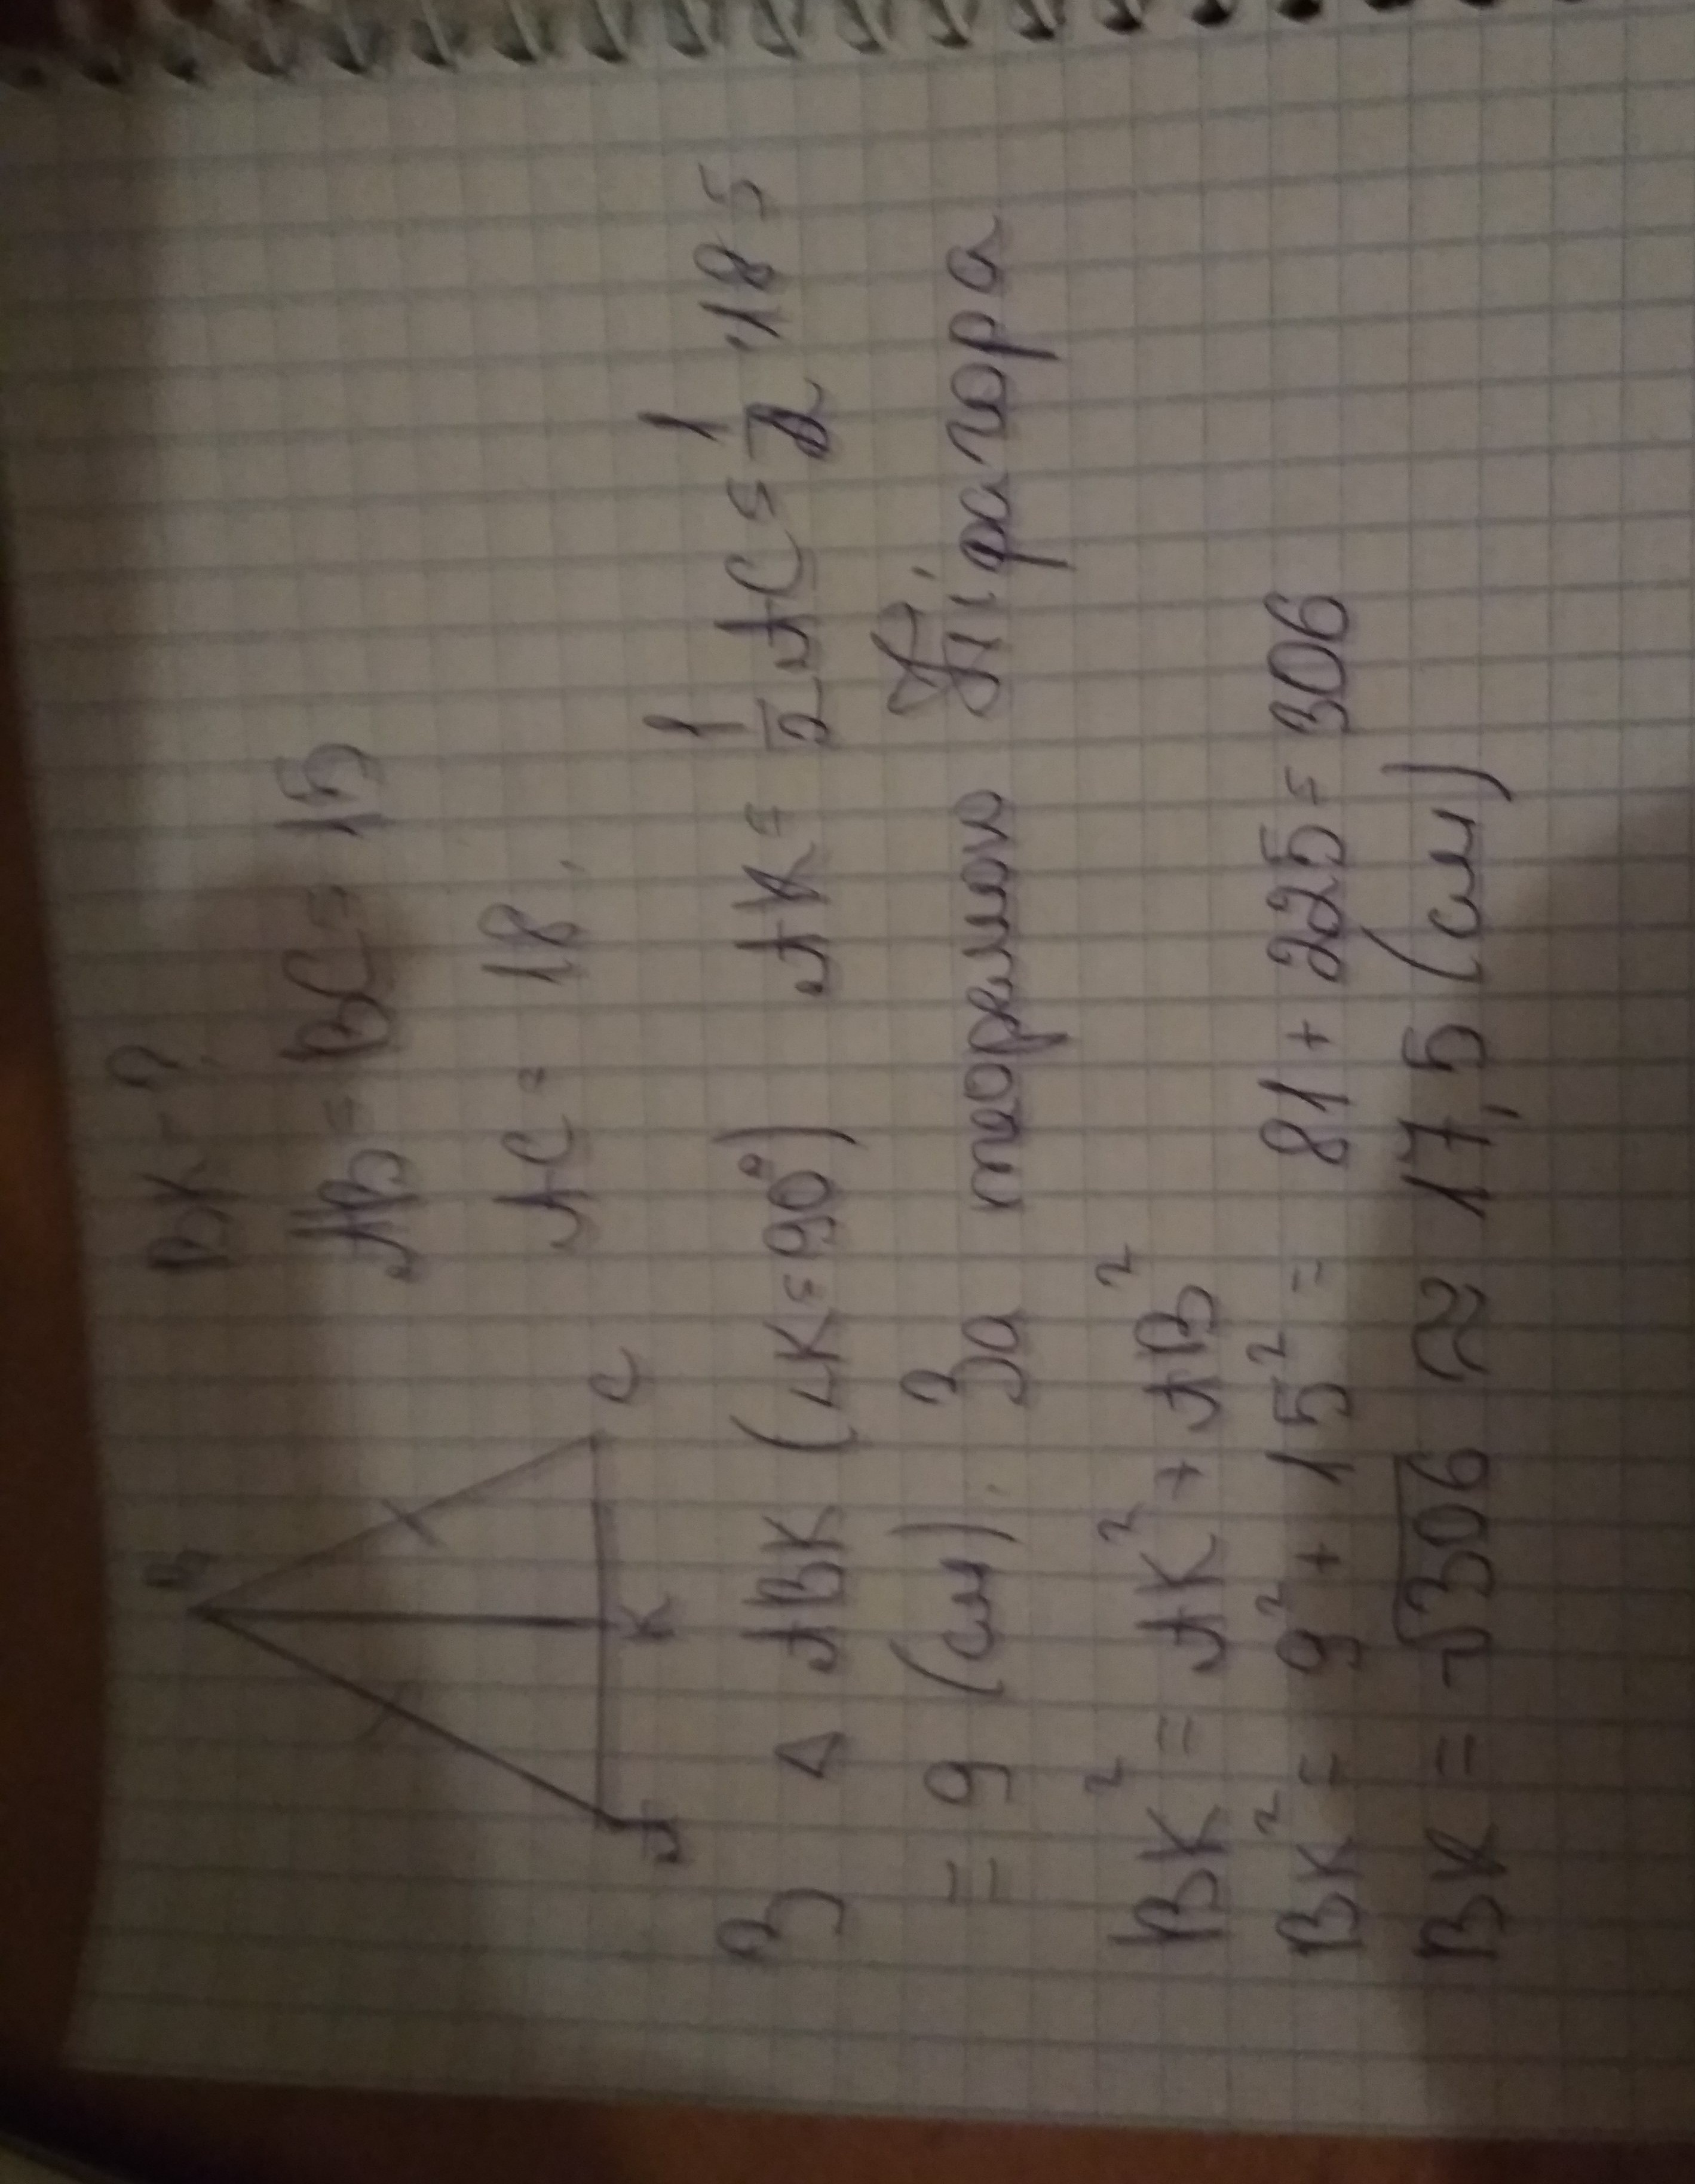 BK - ?
B
AB = BC = 15
AC = 18.
A K C
В Δ ABK (∠K = 90°) AK = 1/2 AC = 1/2 · 18 =
= 9 (см). За теоремою Піфагора
BK² = AK² + AB²
BK² = 9² + 15² = 81 + 225 = 306
BK = √306 ≈ 17,5 (см)